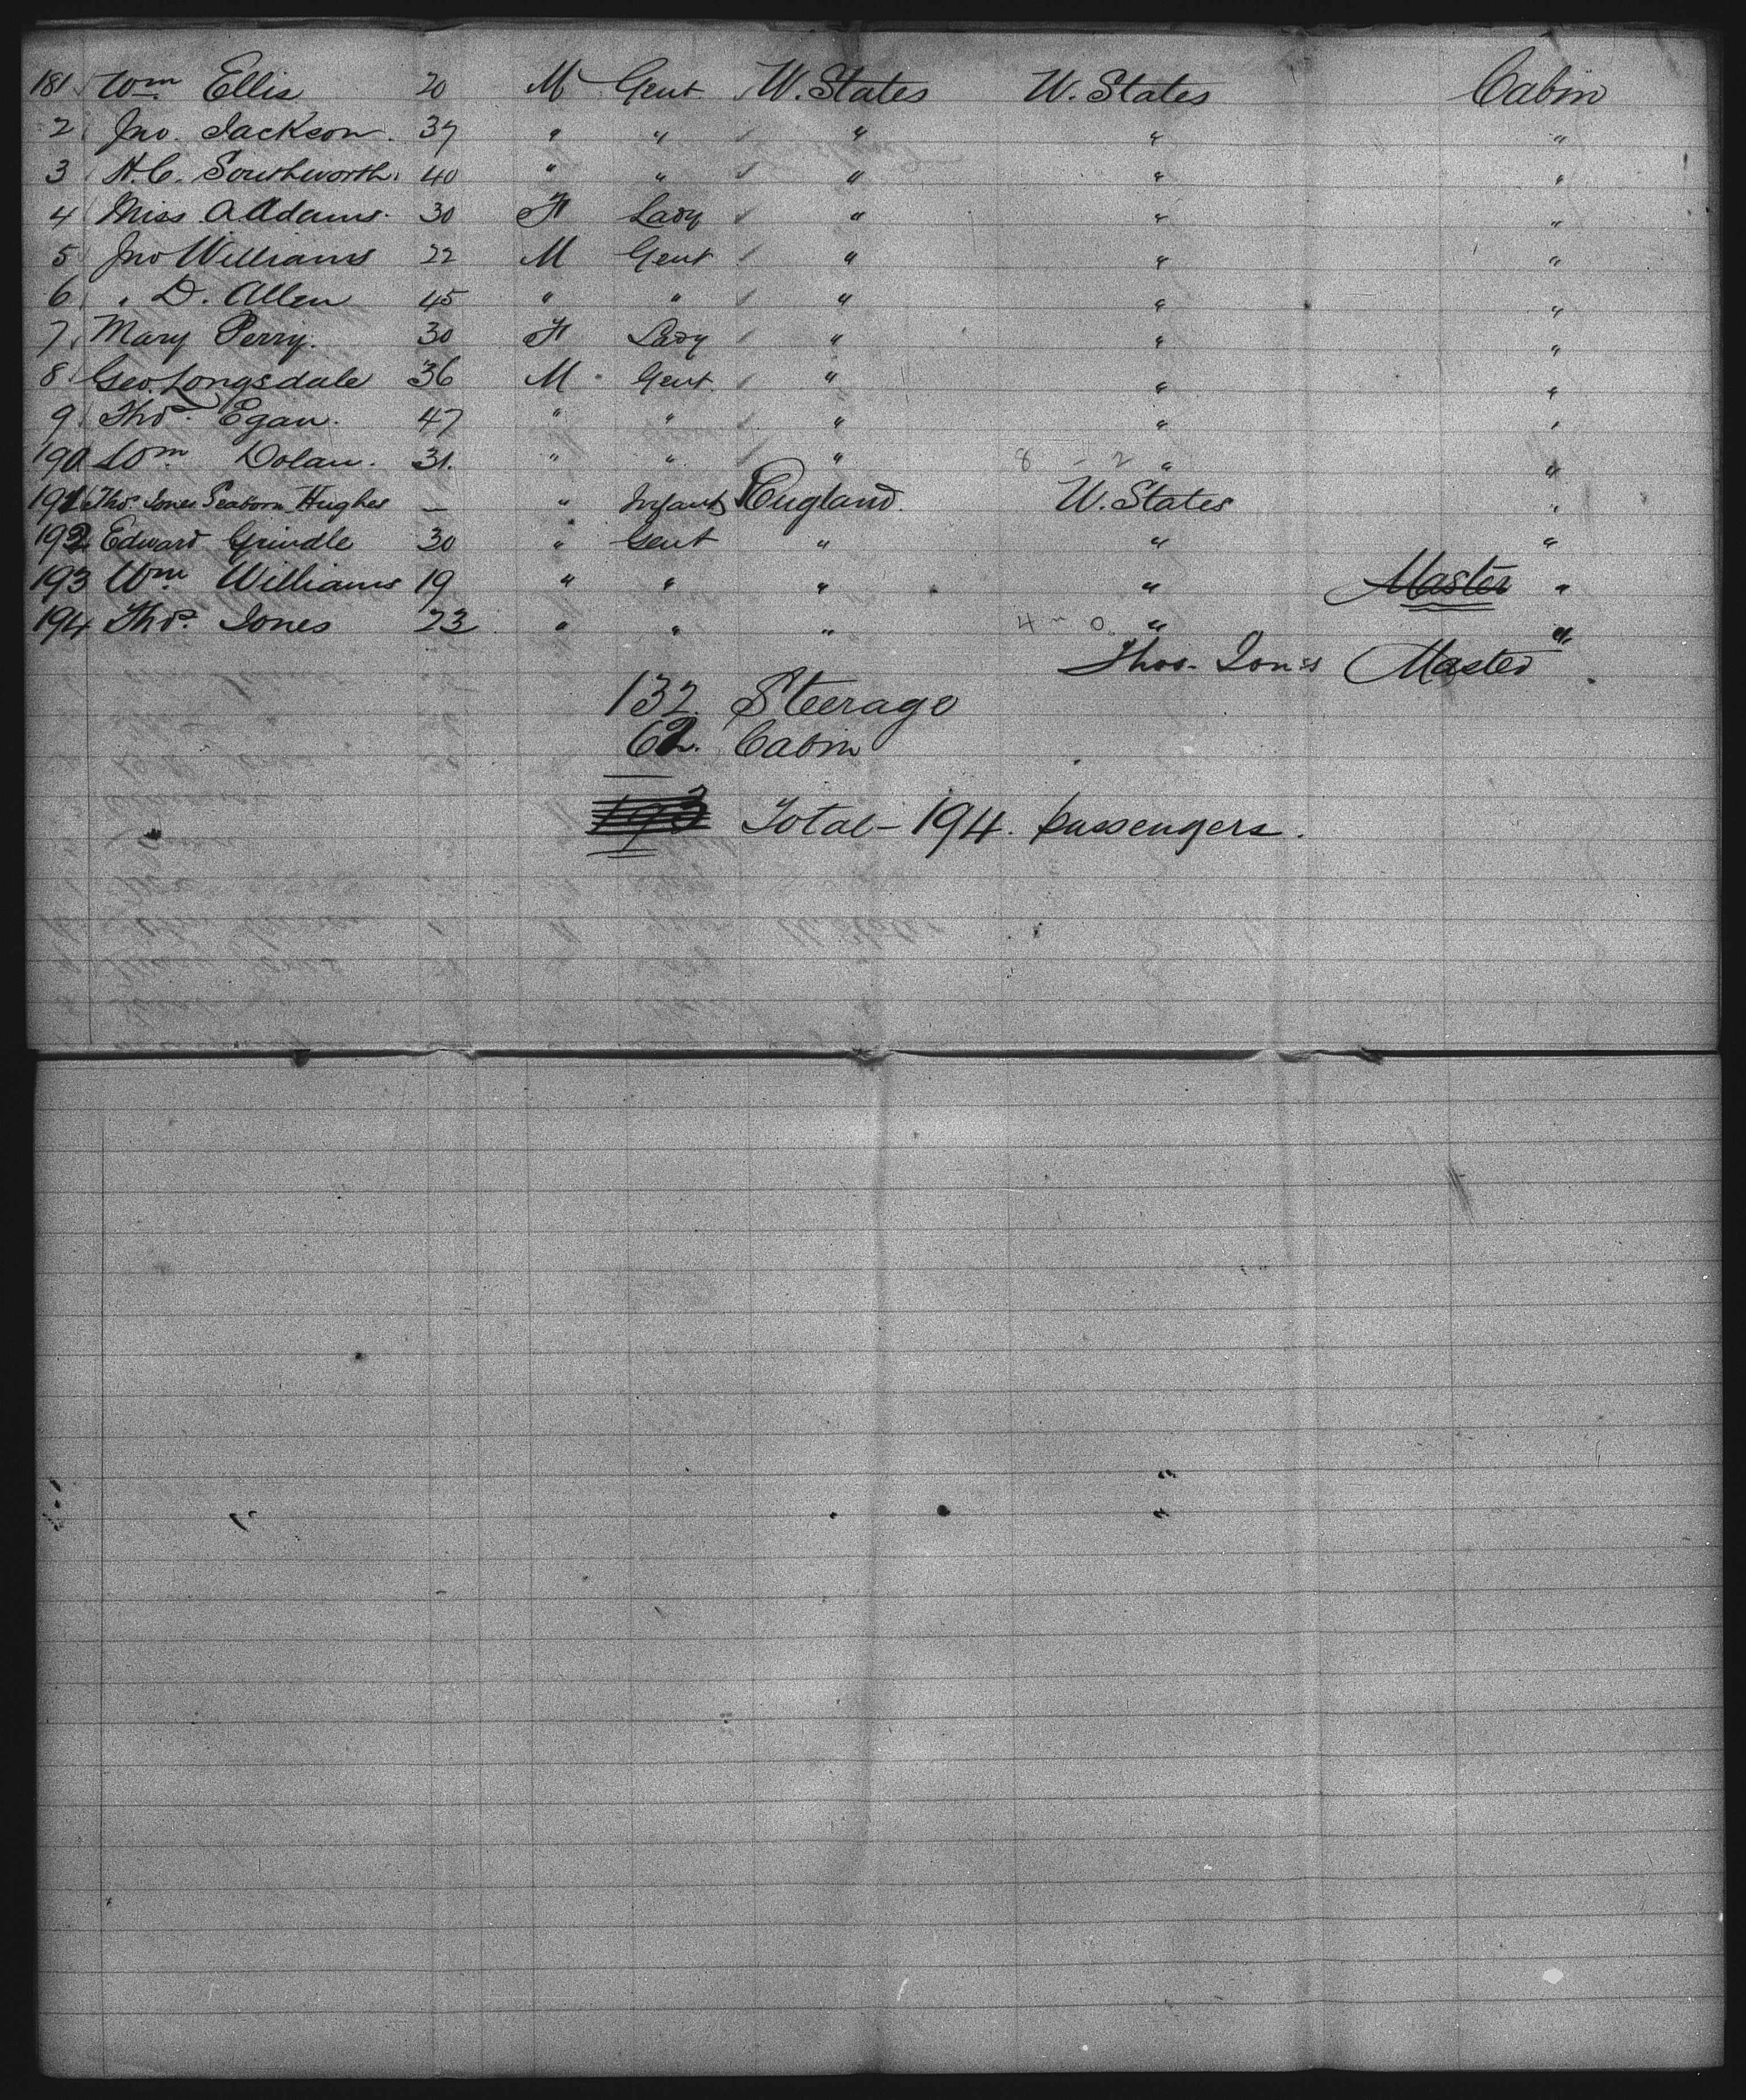 181 Wm Ellis 20 M Gent U. States U. States Cabin
2 Jno. Jackson. 37 " " " " "
3 H.C. Southworth. 40 " " " " "
4 Miss A. Adams. 30 F Lady " " "
5 Jno Williams 22 M Gent " " "
6 " D. Allen 45 " " " " "
7 Mary Perry. 30 F Lady " " "
8 Geo Longsdale 36 M Gent. " " "
9 Thos. Egan. 47 " " " " "
190 Wm Dolan. 31. " " " 8 - 2 " "
191 Thos. Jones Seaborn Hughes — " Infant England. U. States "
192 Edward Grindle 30 " Gent " " "
193 Wm Williams 19 " " " " Master "
194 Thos. Jones 23 " " " 4 - 0 " "
Thos. Jones Master
132. Steerage
62. Cabin
193 Total - 194. passengers.